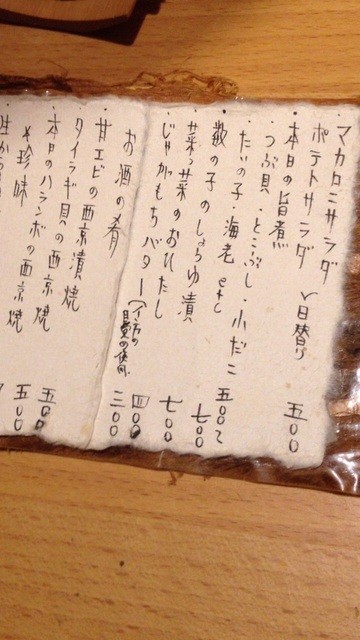 マカロニサラダ
ポテトサラダ 日替り 五〇〇
・本日の旨煮
つぶ貝 とこぶし・小だこ
・たいの子・海老 etc 五〇〇〜
・数の子のしょうゆ漬 七〇〇
・菜っ葉のおひたし 七〇〇
・じゃがもちバター 四〇〇
お酒の肴 三〇〇
・甘エビの西京漬
・タイラギ貝の西京漬焼 五〇〇
・本日のハランボの西京焼 五〇〇
珍味